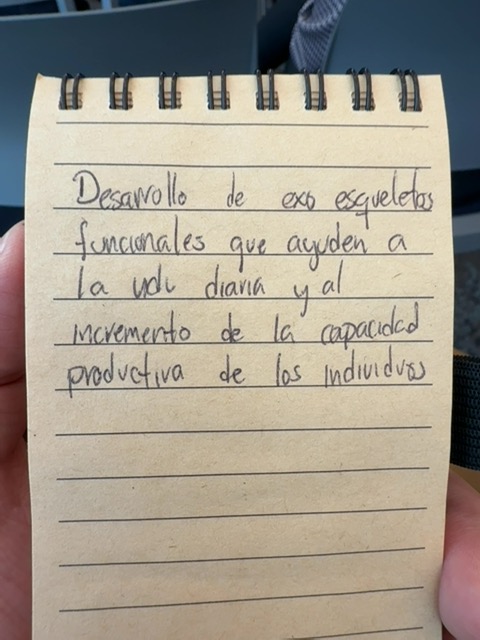 Desarrollo de exo esqueletos
funcionales que ayuden a
la vida diaria y al
incremento de la capacidad
productiva de los individuos